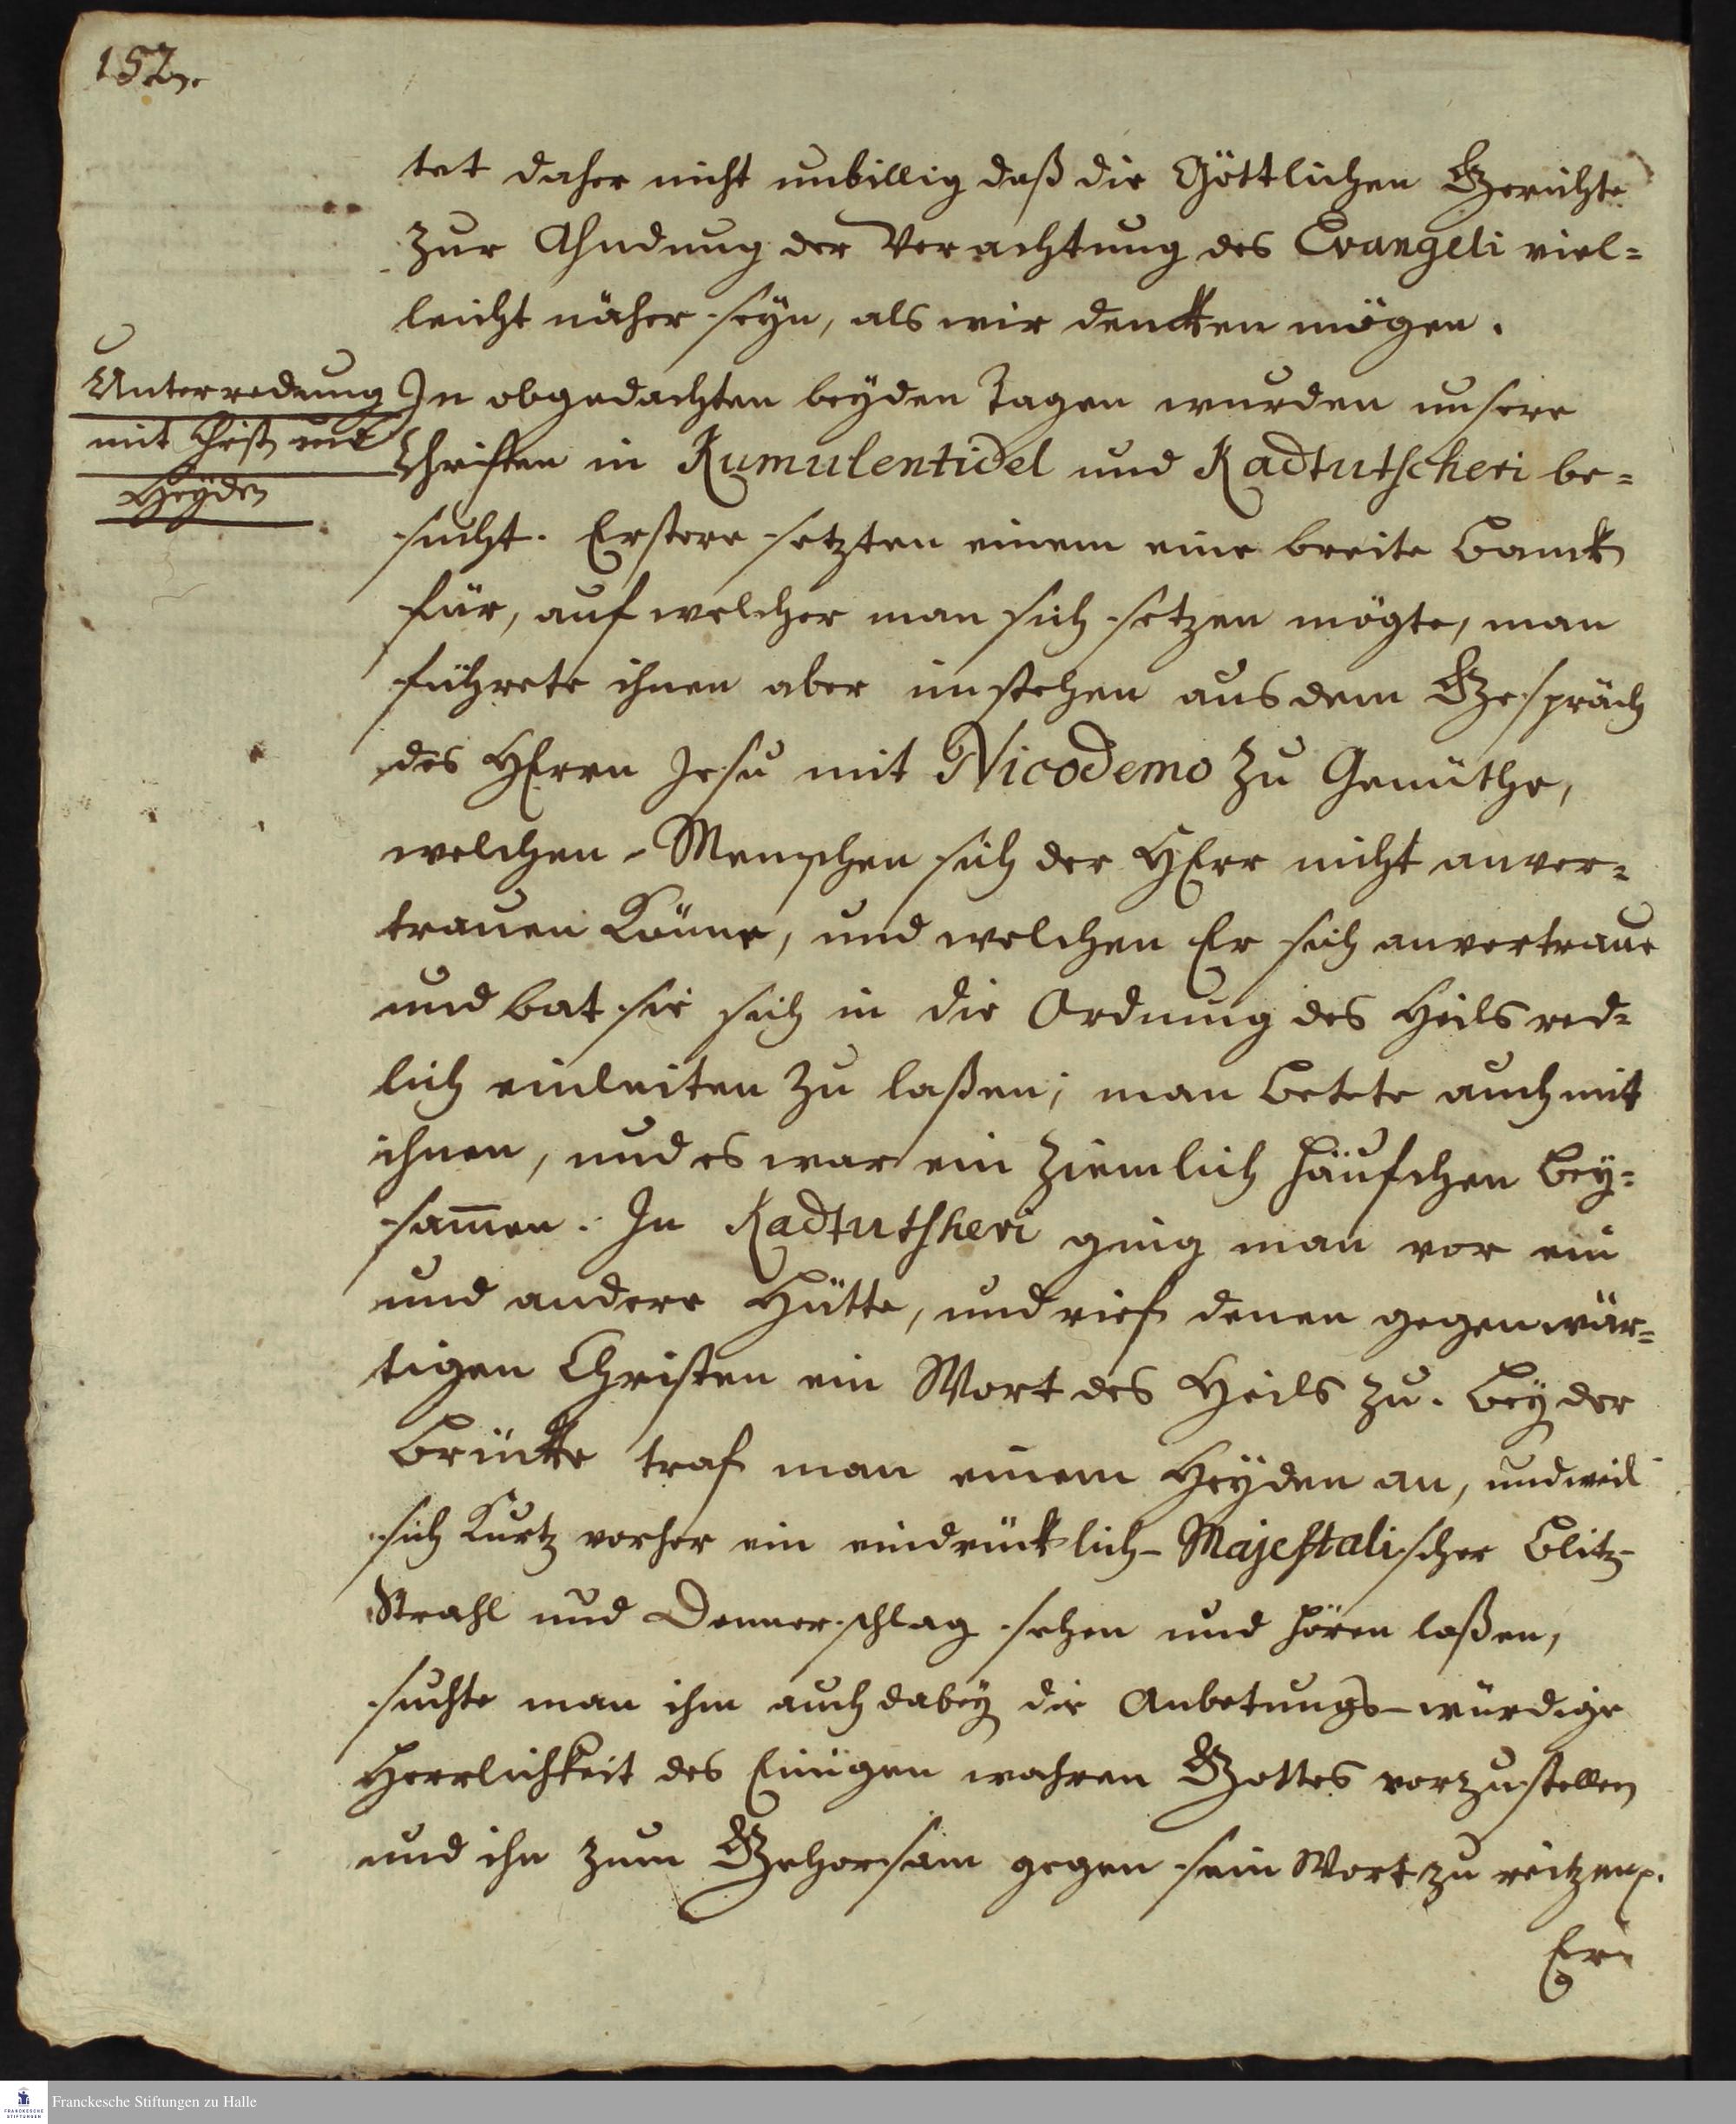 152.
tet daher nicht unbillig daß die Göttlichen Gerichte
zur Ahndung der Verachtung des Evangeli viel=
leicht näher seyn, als wir dencken mögen.
Unterredung
mit Christ. und
Heyden
In obgedachten beyden Tagen wurden unsere
Christen in Kumulentidel und Kadtutscheri be=
sucht. Erstere setzten einem eine breite Banck
für, auf welcher man sich setzen mögte, man
führete ihnen aber im stehen aus dem Gespräch
des HErrn Jesu mit Nicodemo zu Gemüthe,
welchen Menschen sich der HErr nicht anver=
trauen könne, und welchen Er sich anvertraue
und bat sie sich in die Ordnung des Heils red=
lich einleiten zu laßen; man betete auch mit
ihnen, und es war ein ziemlich Häufchen bey=
sam̄en. In Kadtutsheri ging man vor ein
und andere Hütte, und rief denen gegenwär=
tigen Christen ein Wort des Heils zu. Bey der
Brücke traf man einem Heyden an, und weil
sich kurtz vorher ein eindrücklich-Majestätischer Blitz-
Strahl und Donnerschlag sehen und hören laßen,
suchte man ihm auch dabey die Anbetungs-würdige
Herrlichkeit des Einigen wahren Gottes vorzustellen
und ihn zum Gehorsam gegen sein Wort zu reitzen p.
Er=
Franckesche Stiftungen zu Halle